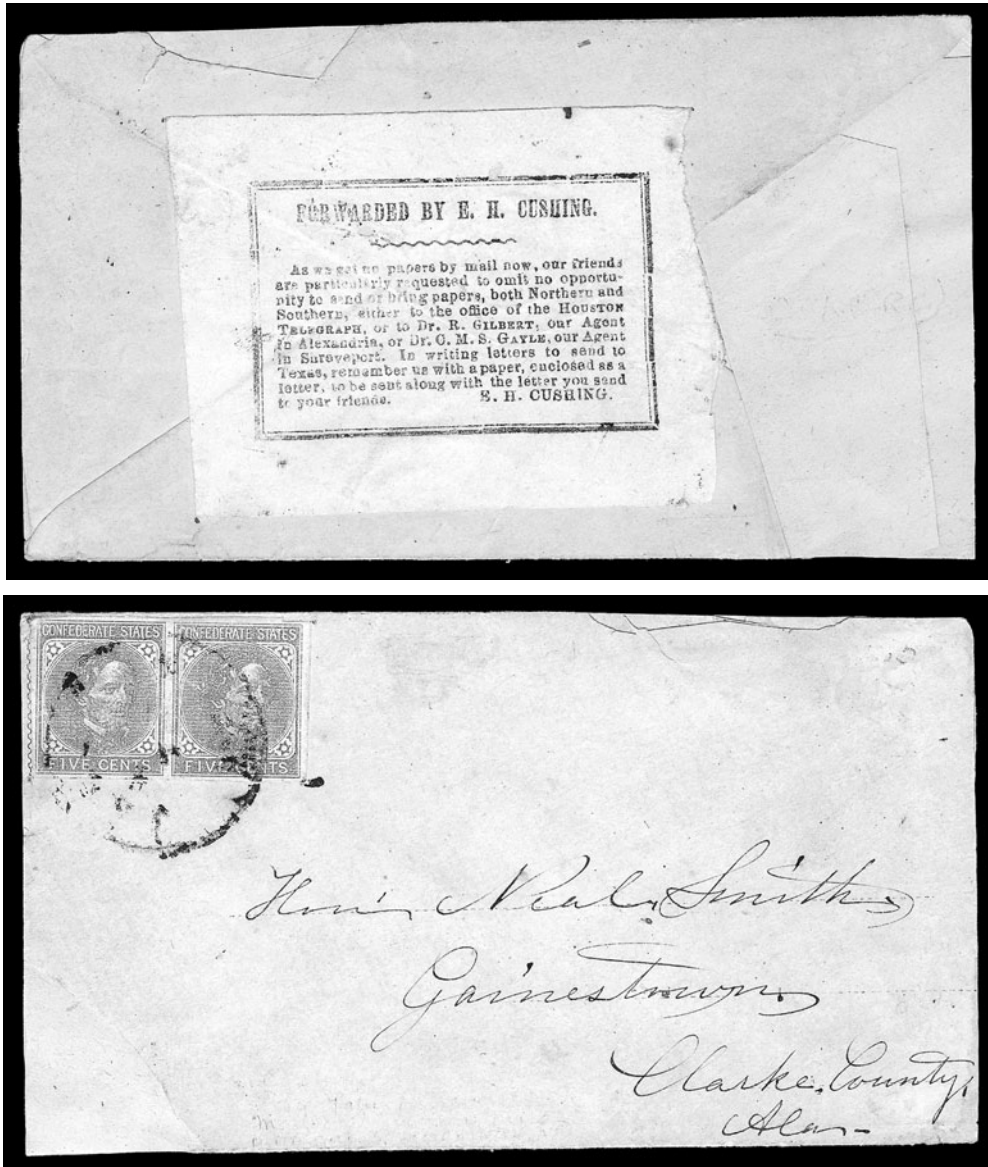 FORWARDED BY E. H. CUSHING.
As we get no papers by mail now, our friends
are particularly requested to omit no opportu-
nity to send or bring papers, both Northern and
Southern, either to the office of the HOUSTON
TELEGRAPH, or to Dr. R. GILBERT, our Agent
in Alexandria, or Dr. C. M. S. GAYLE, our Agent
in Shreveport. In writing letters to send to
Texas, remember us with a paper, enclosed as a
letter, to be sent along with the letter you send
to your friends. E. H. CUSHING.
CONFEDERATE STATES CONFEDERATE STATES
FIVE CENTS FIVE CENTS
Neal Smith
Gainestown
Clarke County,
Ala-